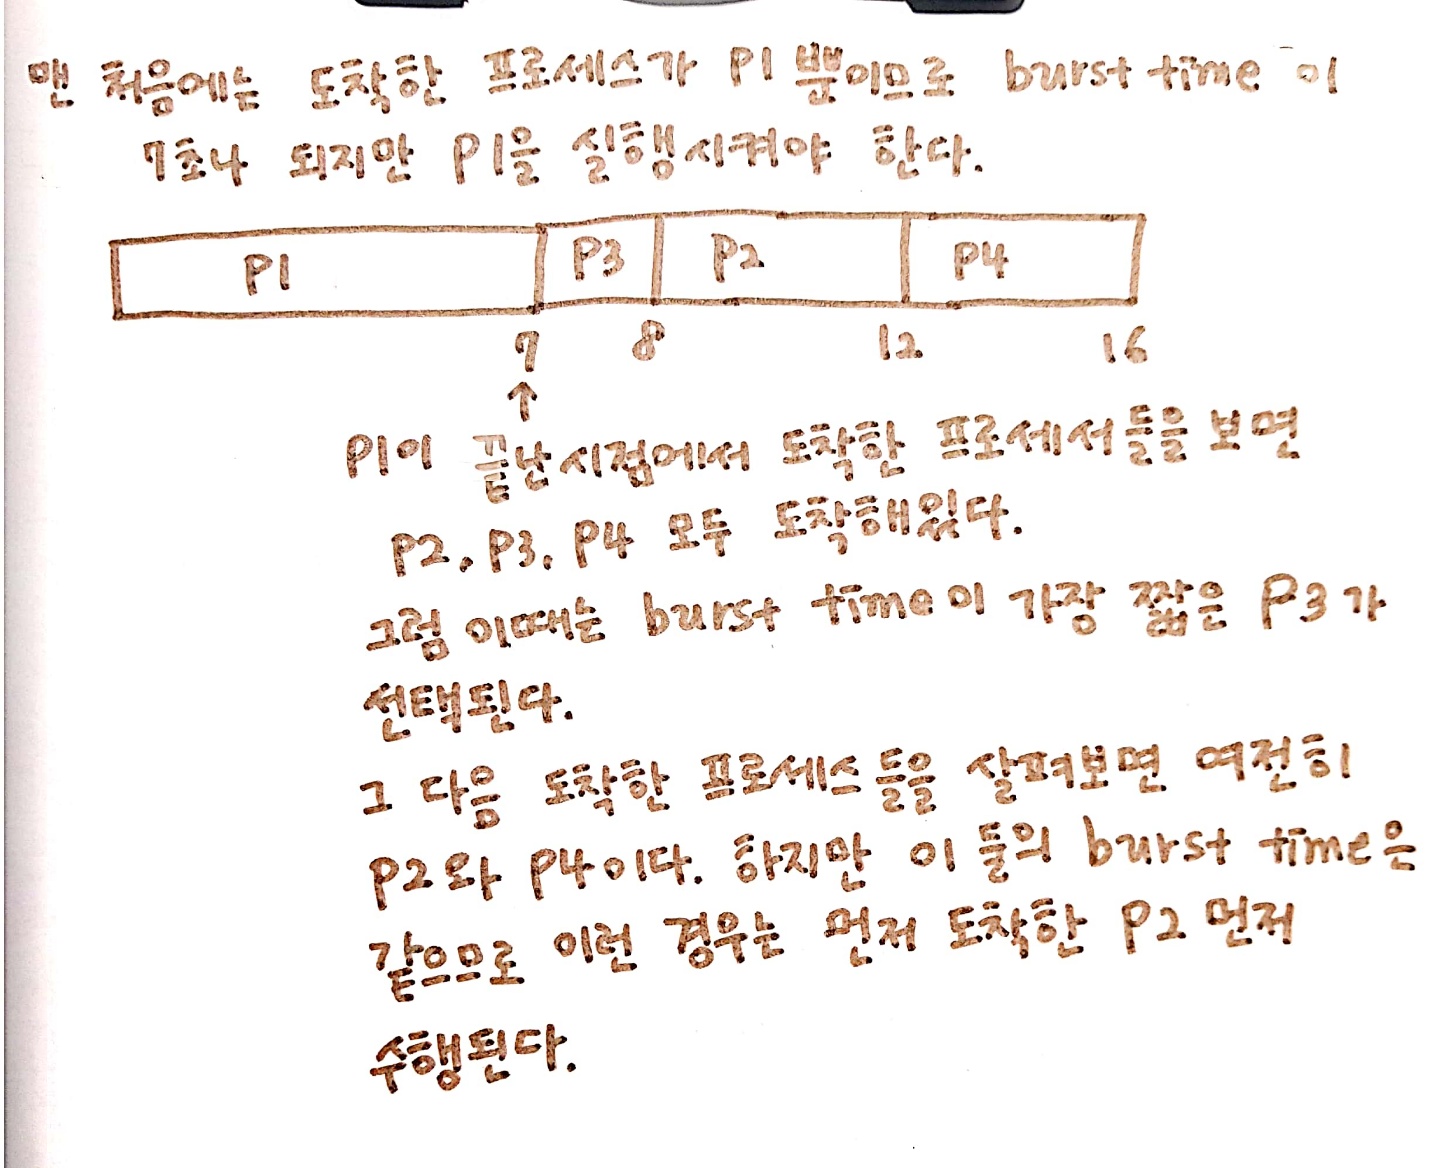 맨 처음에는 도착한 프로세스가 P1 뿐이므로 burst time 이
7초나 되지만 P1을 실행시켜야 한다.
P1 P3 P2 P4
7 8 12 16
↑
P1이 끝난시점에서 도착한 프로세서들을 보면
P2, P3, P4 모두 도착해있다.
그럼 이때는 burst time이 가장 짧은 P3가
선택된다.
그 다음 도착한 프로세스들을 살펴보면 여전히
P2와 P4이다. 하지만 이 둘의 burst time은
같으므로 이런 경우는 먼저 도착한 P2 먼저
수행된다.